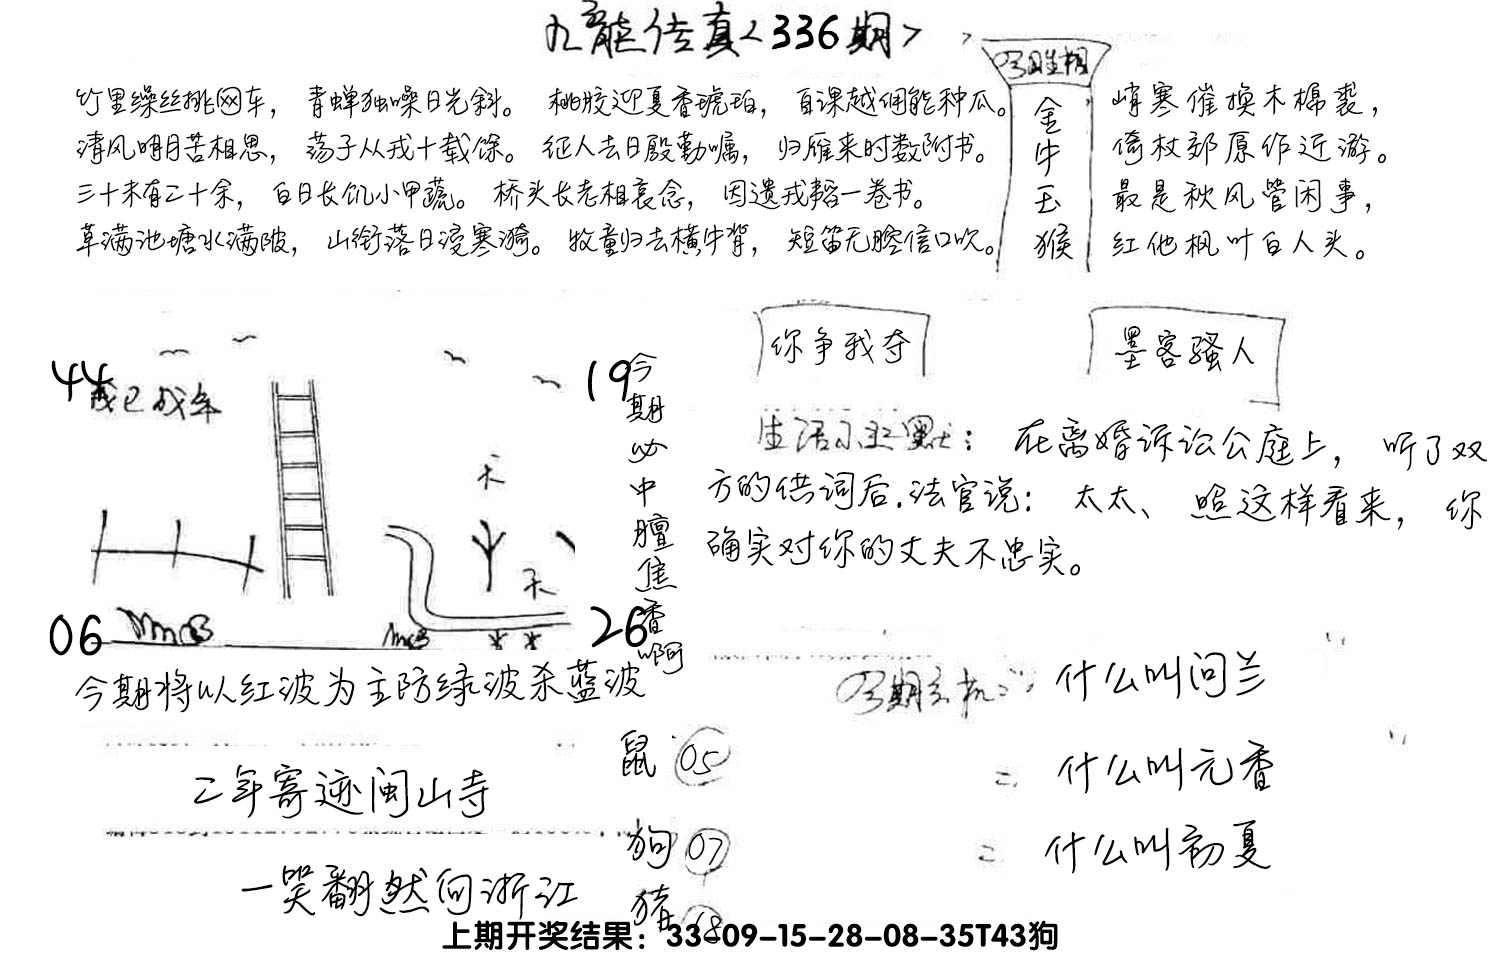 九龙传真<336期>
竹里缲丝挑网车，青蝉独噪日光斜。桃胶迎夏香琥珀，自课越佣能种瓜。
清风明月苦相思，荡子从戎十载馀。征人去日殷勤嘱，归雁来时数附书。
三十未有二十余，白日长饥小甲蔬。桥头长老相哀念，因遗戎韬一卷书。
草满池塘水满陂，山衔落日浸寒漪。牧童归去横牛背，短笛无腔信口吹。
金牛玉猴
峭寒催换木棉裘，
倚杖郊原作近游。
最是秋风管闲事，
红他枫叶白人头。
你争我夺
墨客骚人
44
19
天
天
06
26
今期必中膻焦香啊
今期将以红波为主防绿波杀蓝波
生活幽默：在离婚诉讼公庭上，听了双
方的供词后.法官说：太太、照这样看来，你
确实对你的丈夫不忠实。
今期玄机：什么叫问兰
=什么叫元香
=什么叫初夏
二年寄迹闽山寺
一笑翻然向浙江
鼠 05
狗 07
猪 18
上期开奖结果：33-09-15-28-08-35T43狗